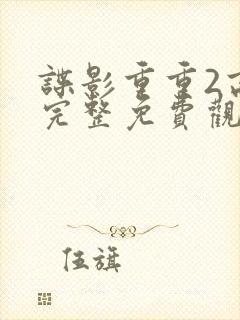 諜影重重2高
完整免費觀
伍旗